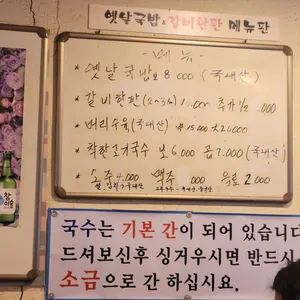 옛날국밥 & 갈비한판 메뉴판
- 메 뉴 -
* 옛날국밥 보 8 000 (국내산)
* 갈비한판(2~3人) 추가 1/2 .000
* 머리수육(국내산) 小15000 大20000
* 착한소머국수 보 6.000 곱 7.000 (국내산)
* 소주 4.000 맥주 000 음료 2 000
국수는 기본 간이 되어 있습니다
드셔보신후 싱거우시면 반드시
소금으로 간 하십시요.